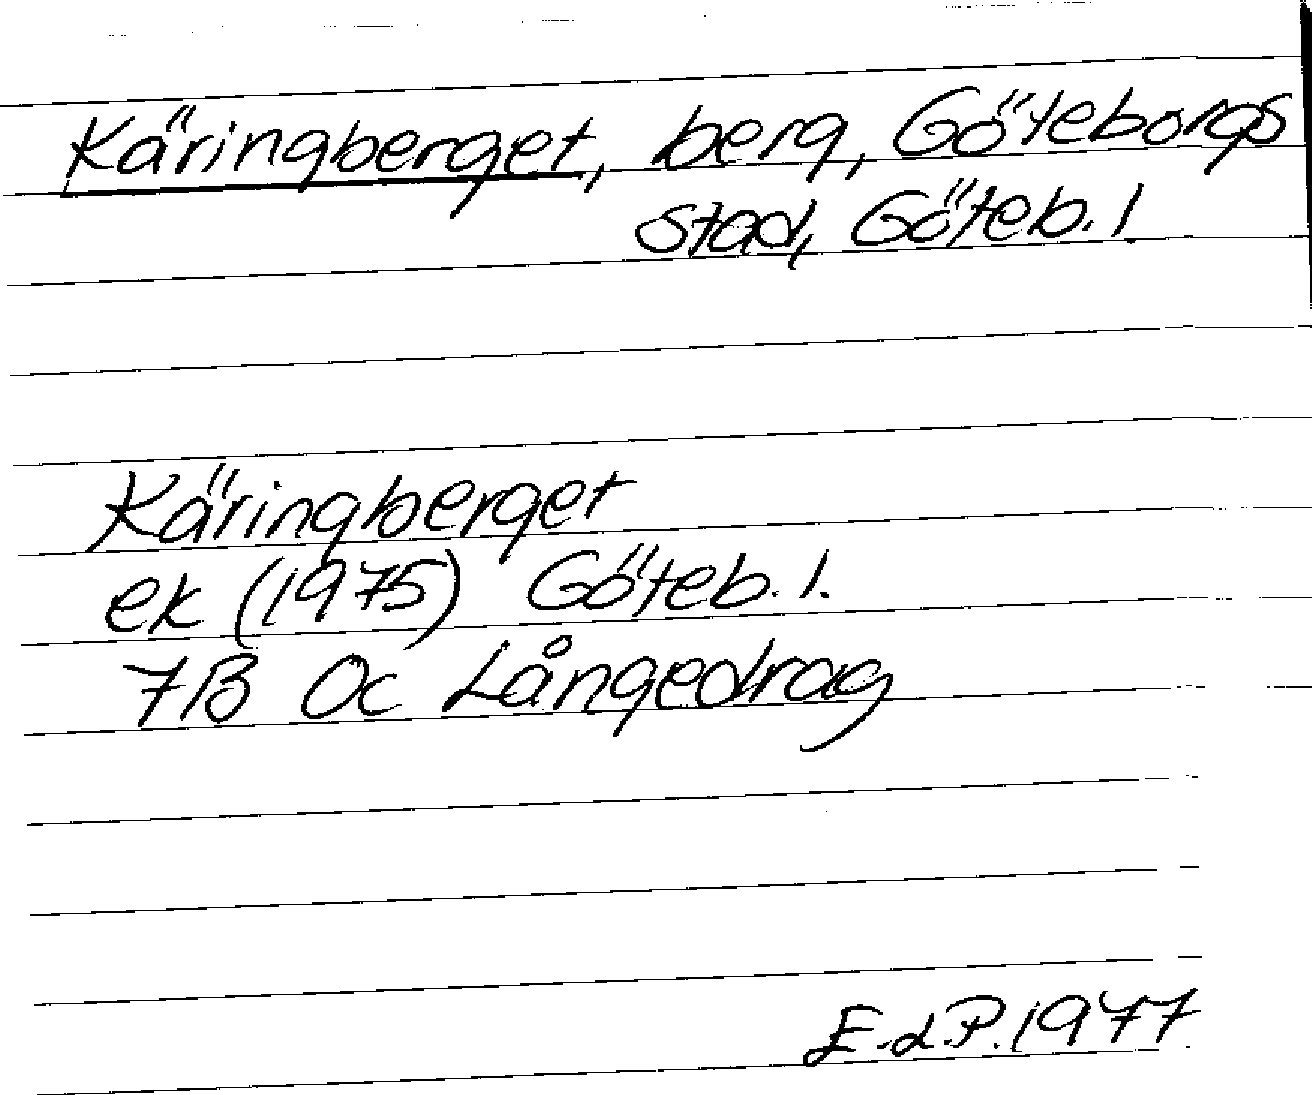 Käringberget, berg, Göteborgs
stad, Göteb. l
Käringberget
ek (1975) Göteb. l.
7B Oc Långedrag
E.d.P. 1977